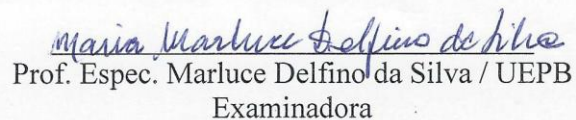 Maria Marluce Delfino da Silva
Prof. Espec. Marluce Delfino da Silva / UEPB
Examinadora